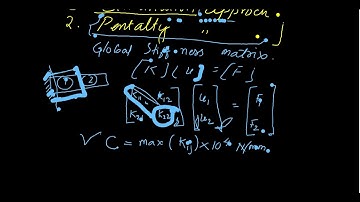 approach
2. Pentalty "
Global Stiffness matrix.
[K] {u} = {F}
1 2
[K11 K12 K21 K22] {u1 u2} = {F1 F2}
✓ C = max (Kij) × 10⁴ N/mm.